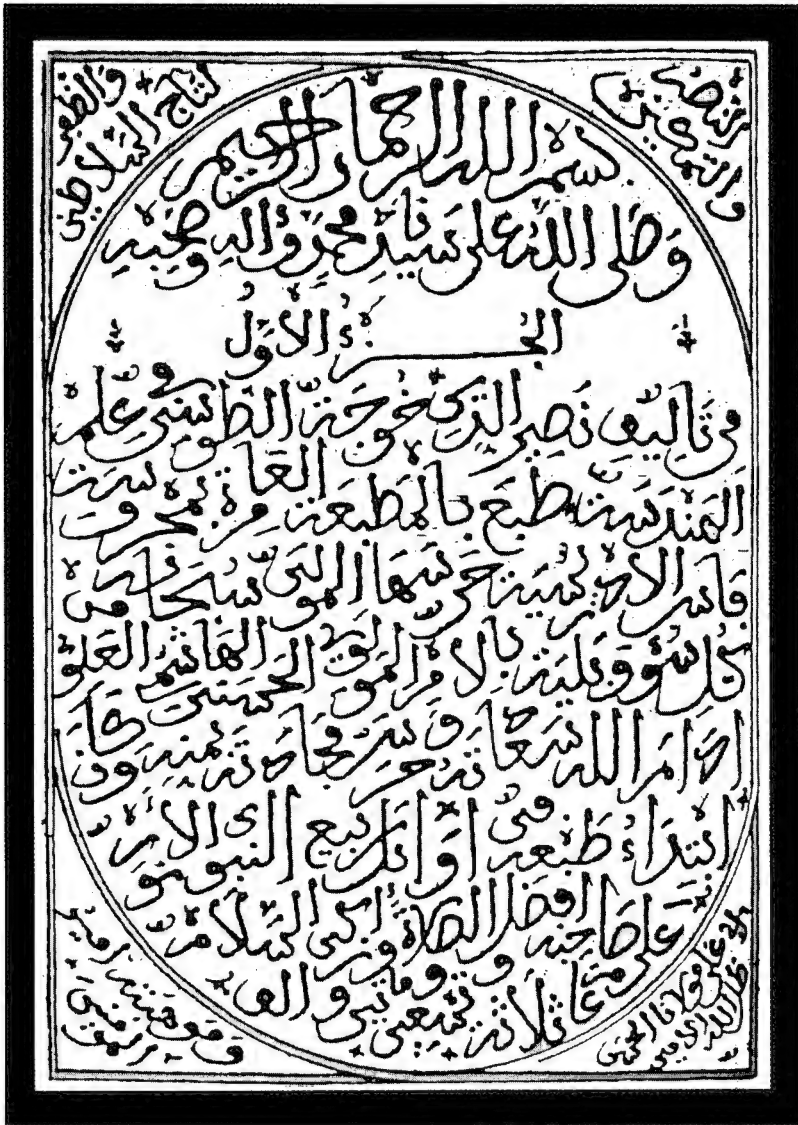 النصر والتمكين
والظفر لتاج السلاطين
بسم الله الرحمان الرحيم
وصلى الله على سيدنا محمد وءاله وصحبه
الجزء الأول
من تاليف نصير الدين خوجة الطوسي في علم
الهندسة طبع بالمطبعة العامرة بمحروسة
فاس الادريسية حرسها المولى سبحانه من
كل سوء وبلية بالامر المولوي الهاشمي العلوي الحسني
ادام الله سعادته وحرس مجادته بمنه وكان
ابتداء طبعه في اوائل ربيع النبوي الانور
على صاحبه افضل الصلاة وازكى السلام
عام ثلاثة وتسعين ومائتين والف
على مولانا الحسن
ظل الله
امير
المومنين